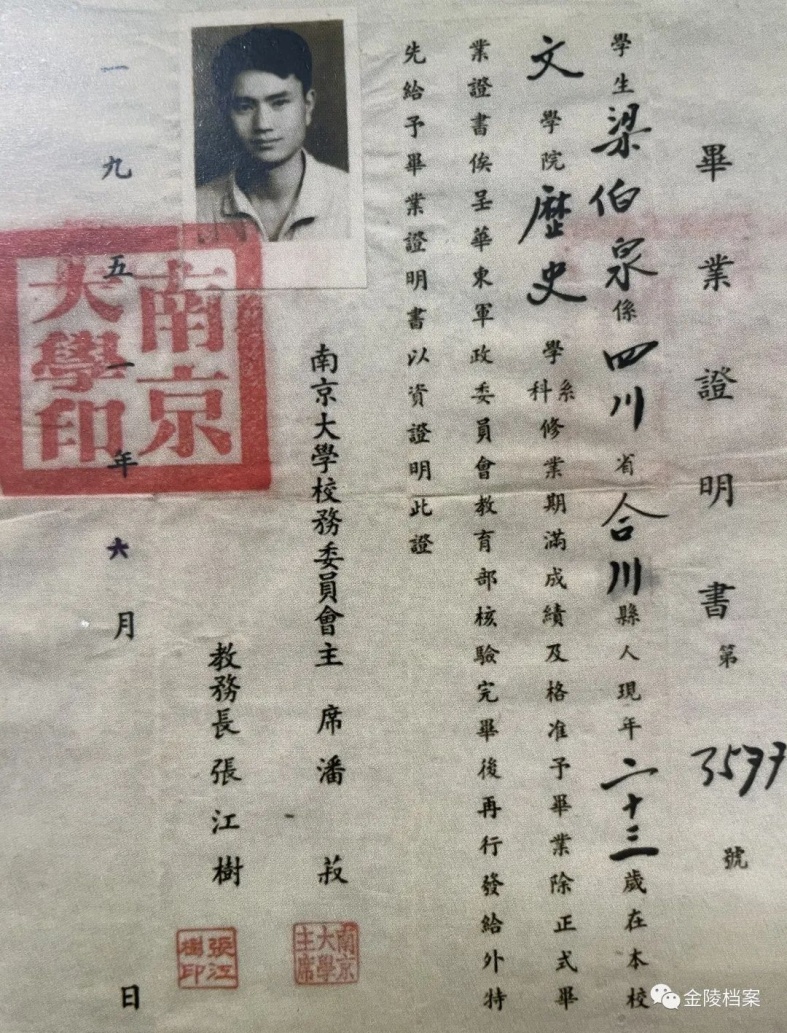 畢業證明書第3577號
學生梁伯泉係四川省合川縣人現年二十三歲在本校
文學院歷史學系科修業期滿成績及格准予畢業除正式畢
業證書俟呈華東軍政委員會教育部核驗完畢後再行發給外特
先給予畢業證明書以資證明此證
南京大學校務委員會主席潘菽
教務長張江樹
一九五一年六月日
南京大學印
南京大學主席
張江樹印
金陵档案